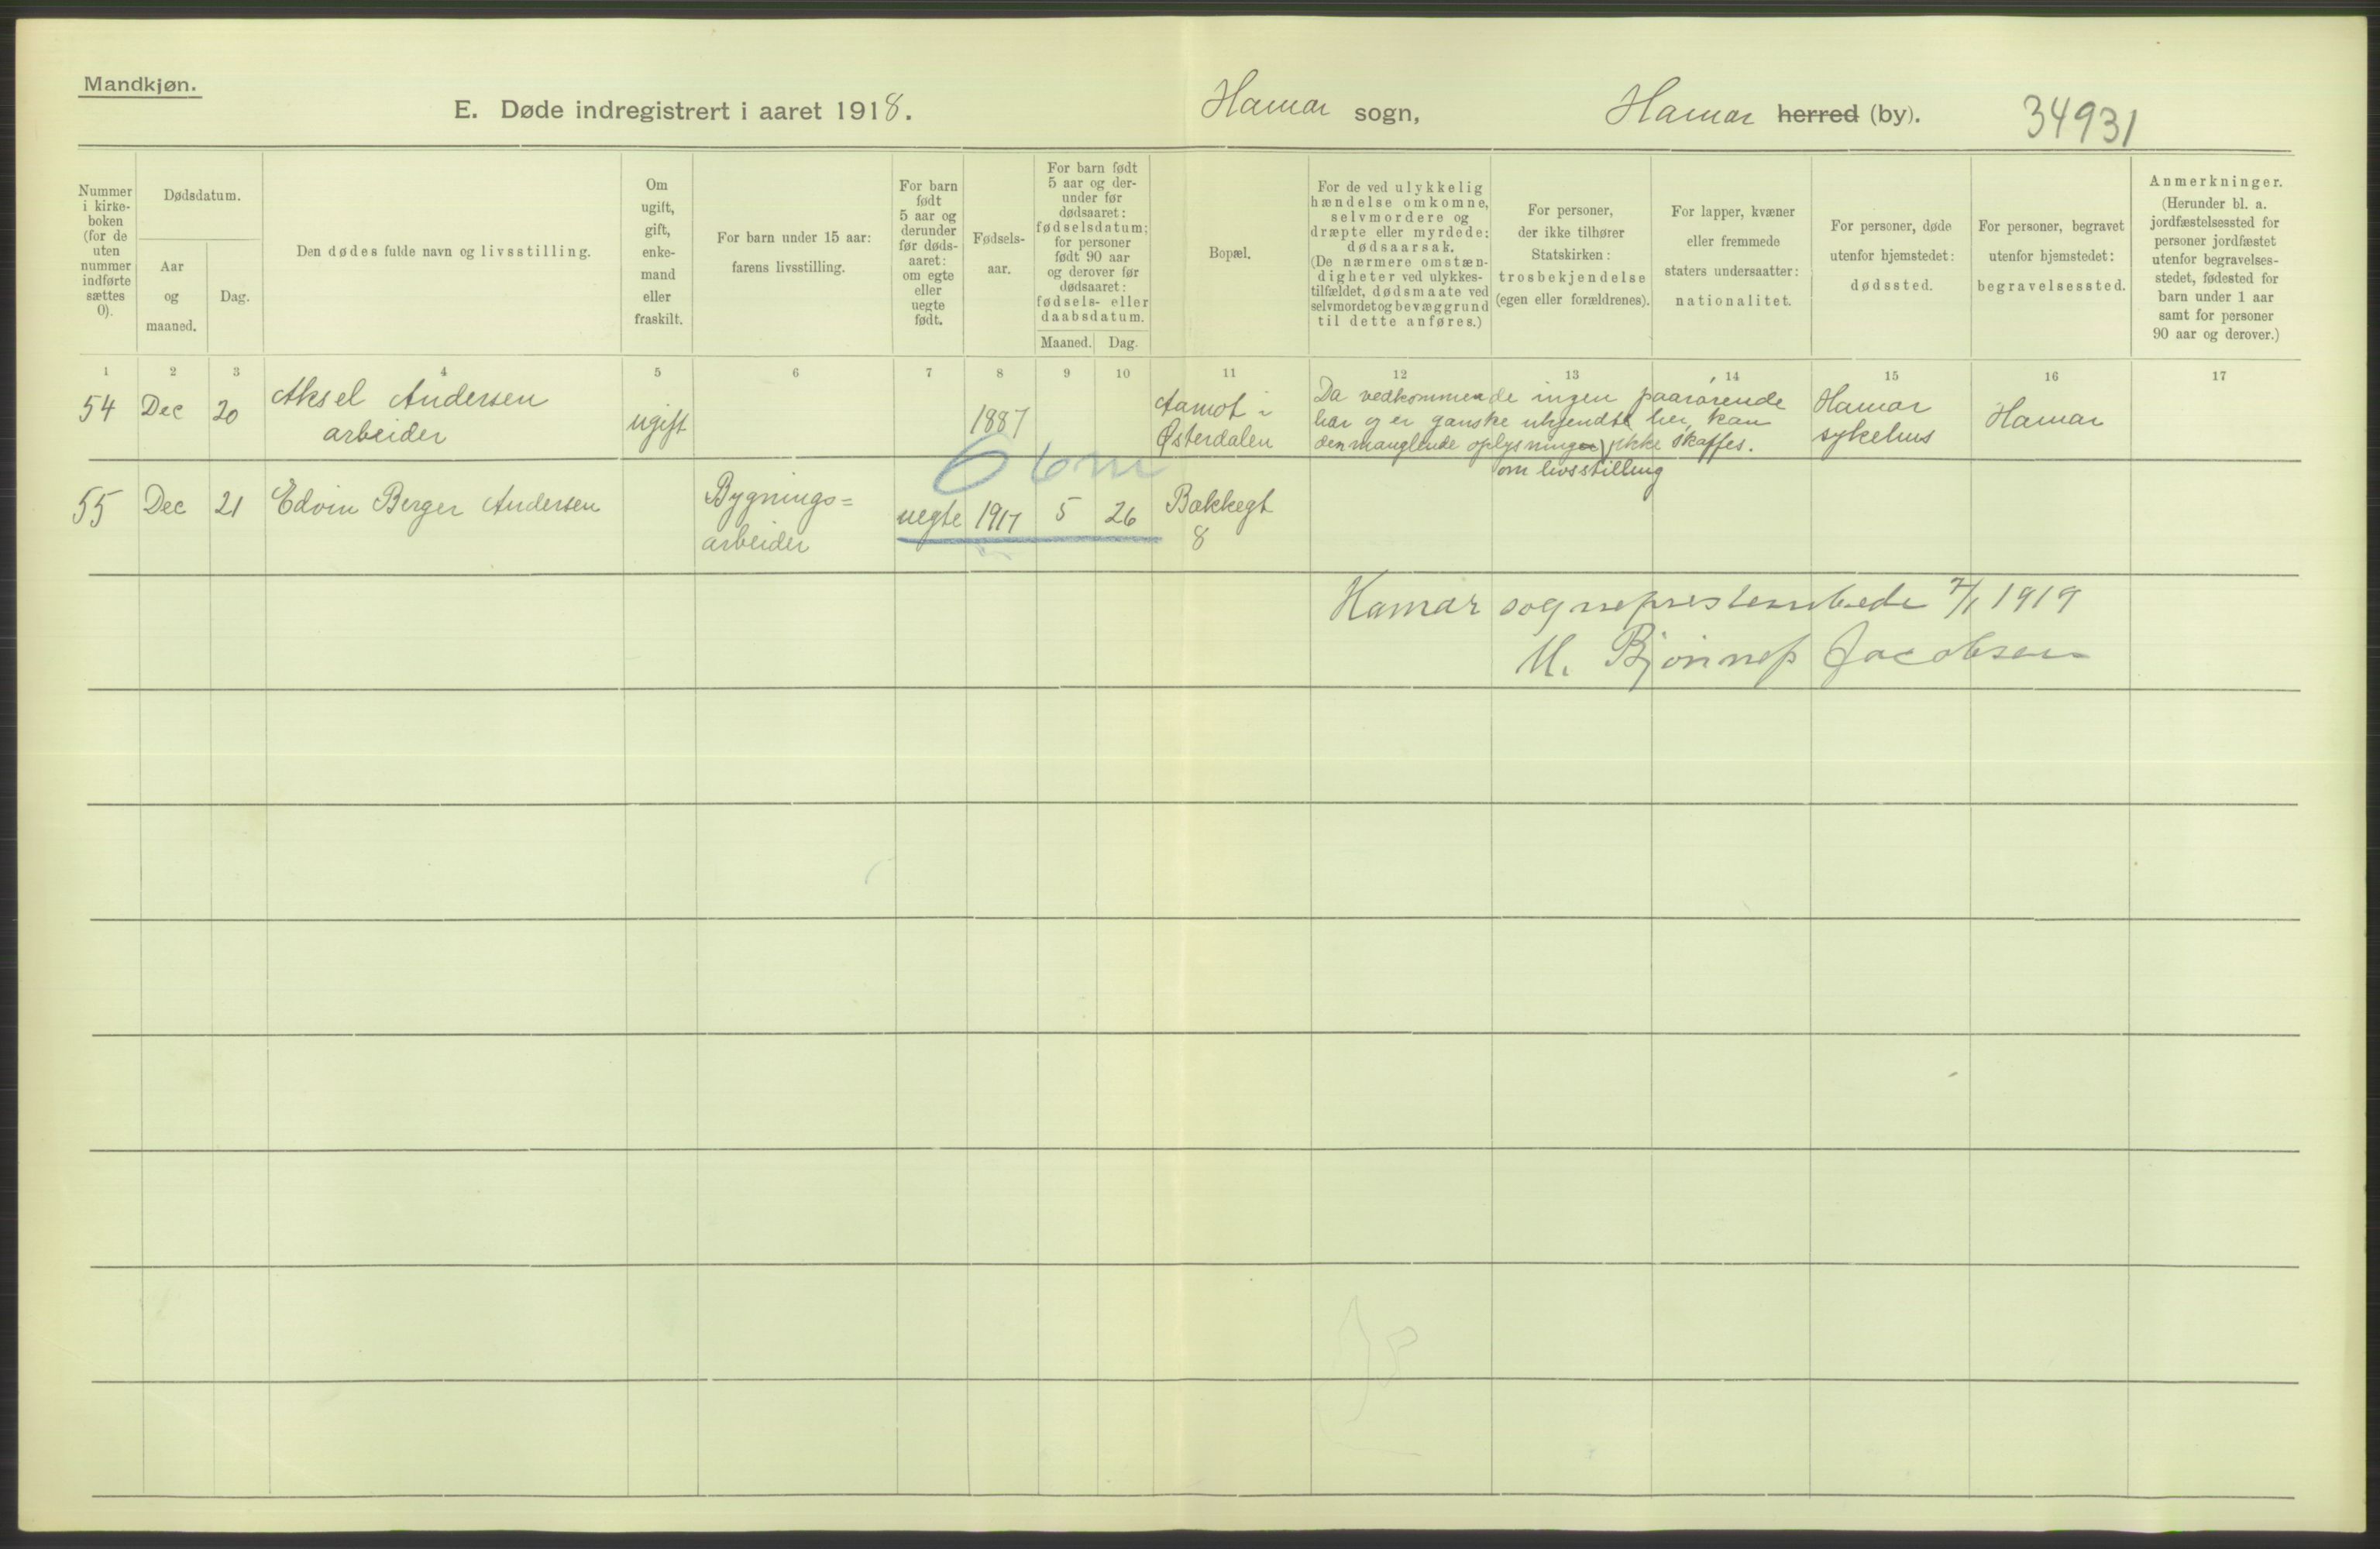 Mandkjøn.
E. Døde indregistrert i aaret 1918. Hamar sogn, Hamar herred (by). 34931
Nummer
i kirke-
boken
(for de
uten
nummer
indførte
sættes
0).
Dødsdatum.
Aar
og
maaned.
Dag.
Den dødes fulde navn og livsstilling.
Om
ugift,
gift,
enke-
mand
eller
fraskilt.
For barn under 15 aar:
farens livsstilling.
For barn
født
5 aar og
derunder
før døds-
aaret:
om egte
eller
uegte
født.
Fødsels-
aar.
For barn født
5 aar og der-
under før
dødsaaret:
fødselsdatum;
for personer
født 90 aar
og derover før
dødsaaret:
fødsels- eller
daabsdatum.
Maaned. Dag.
Bopæl.
For de ved ulykkelig
hændelse omkomne,
selvmordere og
dræpte eller myrdede:
dødsaarsak.
(De nærmere omstæn-
digheter ved ulykkes-
tilfældet, dødsmaate ved
selvmordet og bevæggrund
til dette anføres.)
For personer,
der ikke tilhører
Statskirken:
trosbekjendelse
(egen eller forældrenes).
For lapper, kvæner
eller fremmede
staters undersaatter:
nationalitet.
For personer, døde
utenfor hjemstedet:
dødssted.
For personer, begravet
utenfor hjemstedet:
begravelsessted.
Anmerkninger.
(Herunder bl. a.
jordfæstelsessted for
personer jordfæstet
utenfor begravelses-
stedet, fødested for
barn under 1 aar
samt for personer
90 aar og derover.)
1 2 3 4 5 6 7 8 9 10 11 12 13 14 15 16 17
54 Dec 20 Aksel Andersen
arbeider
ugift
1887
Aamot i
Østerdalen
Da vedkommende ingen paarørende
har og er ganske ukjendt her, kan
den manglende oplysning ikke skaffes.
om livsstilling
Hamar
sykehus
Hamar
6 6m
55 Dec 21 Edvin Berger Andersen
Bygnings=
arbeider
uegte 1917 5 26
Bakkegt
8
Hamar sogneprestembede 7/1 1919
M. Jacobsen